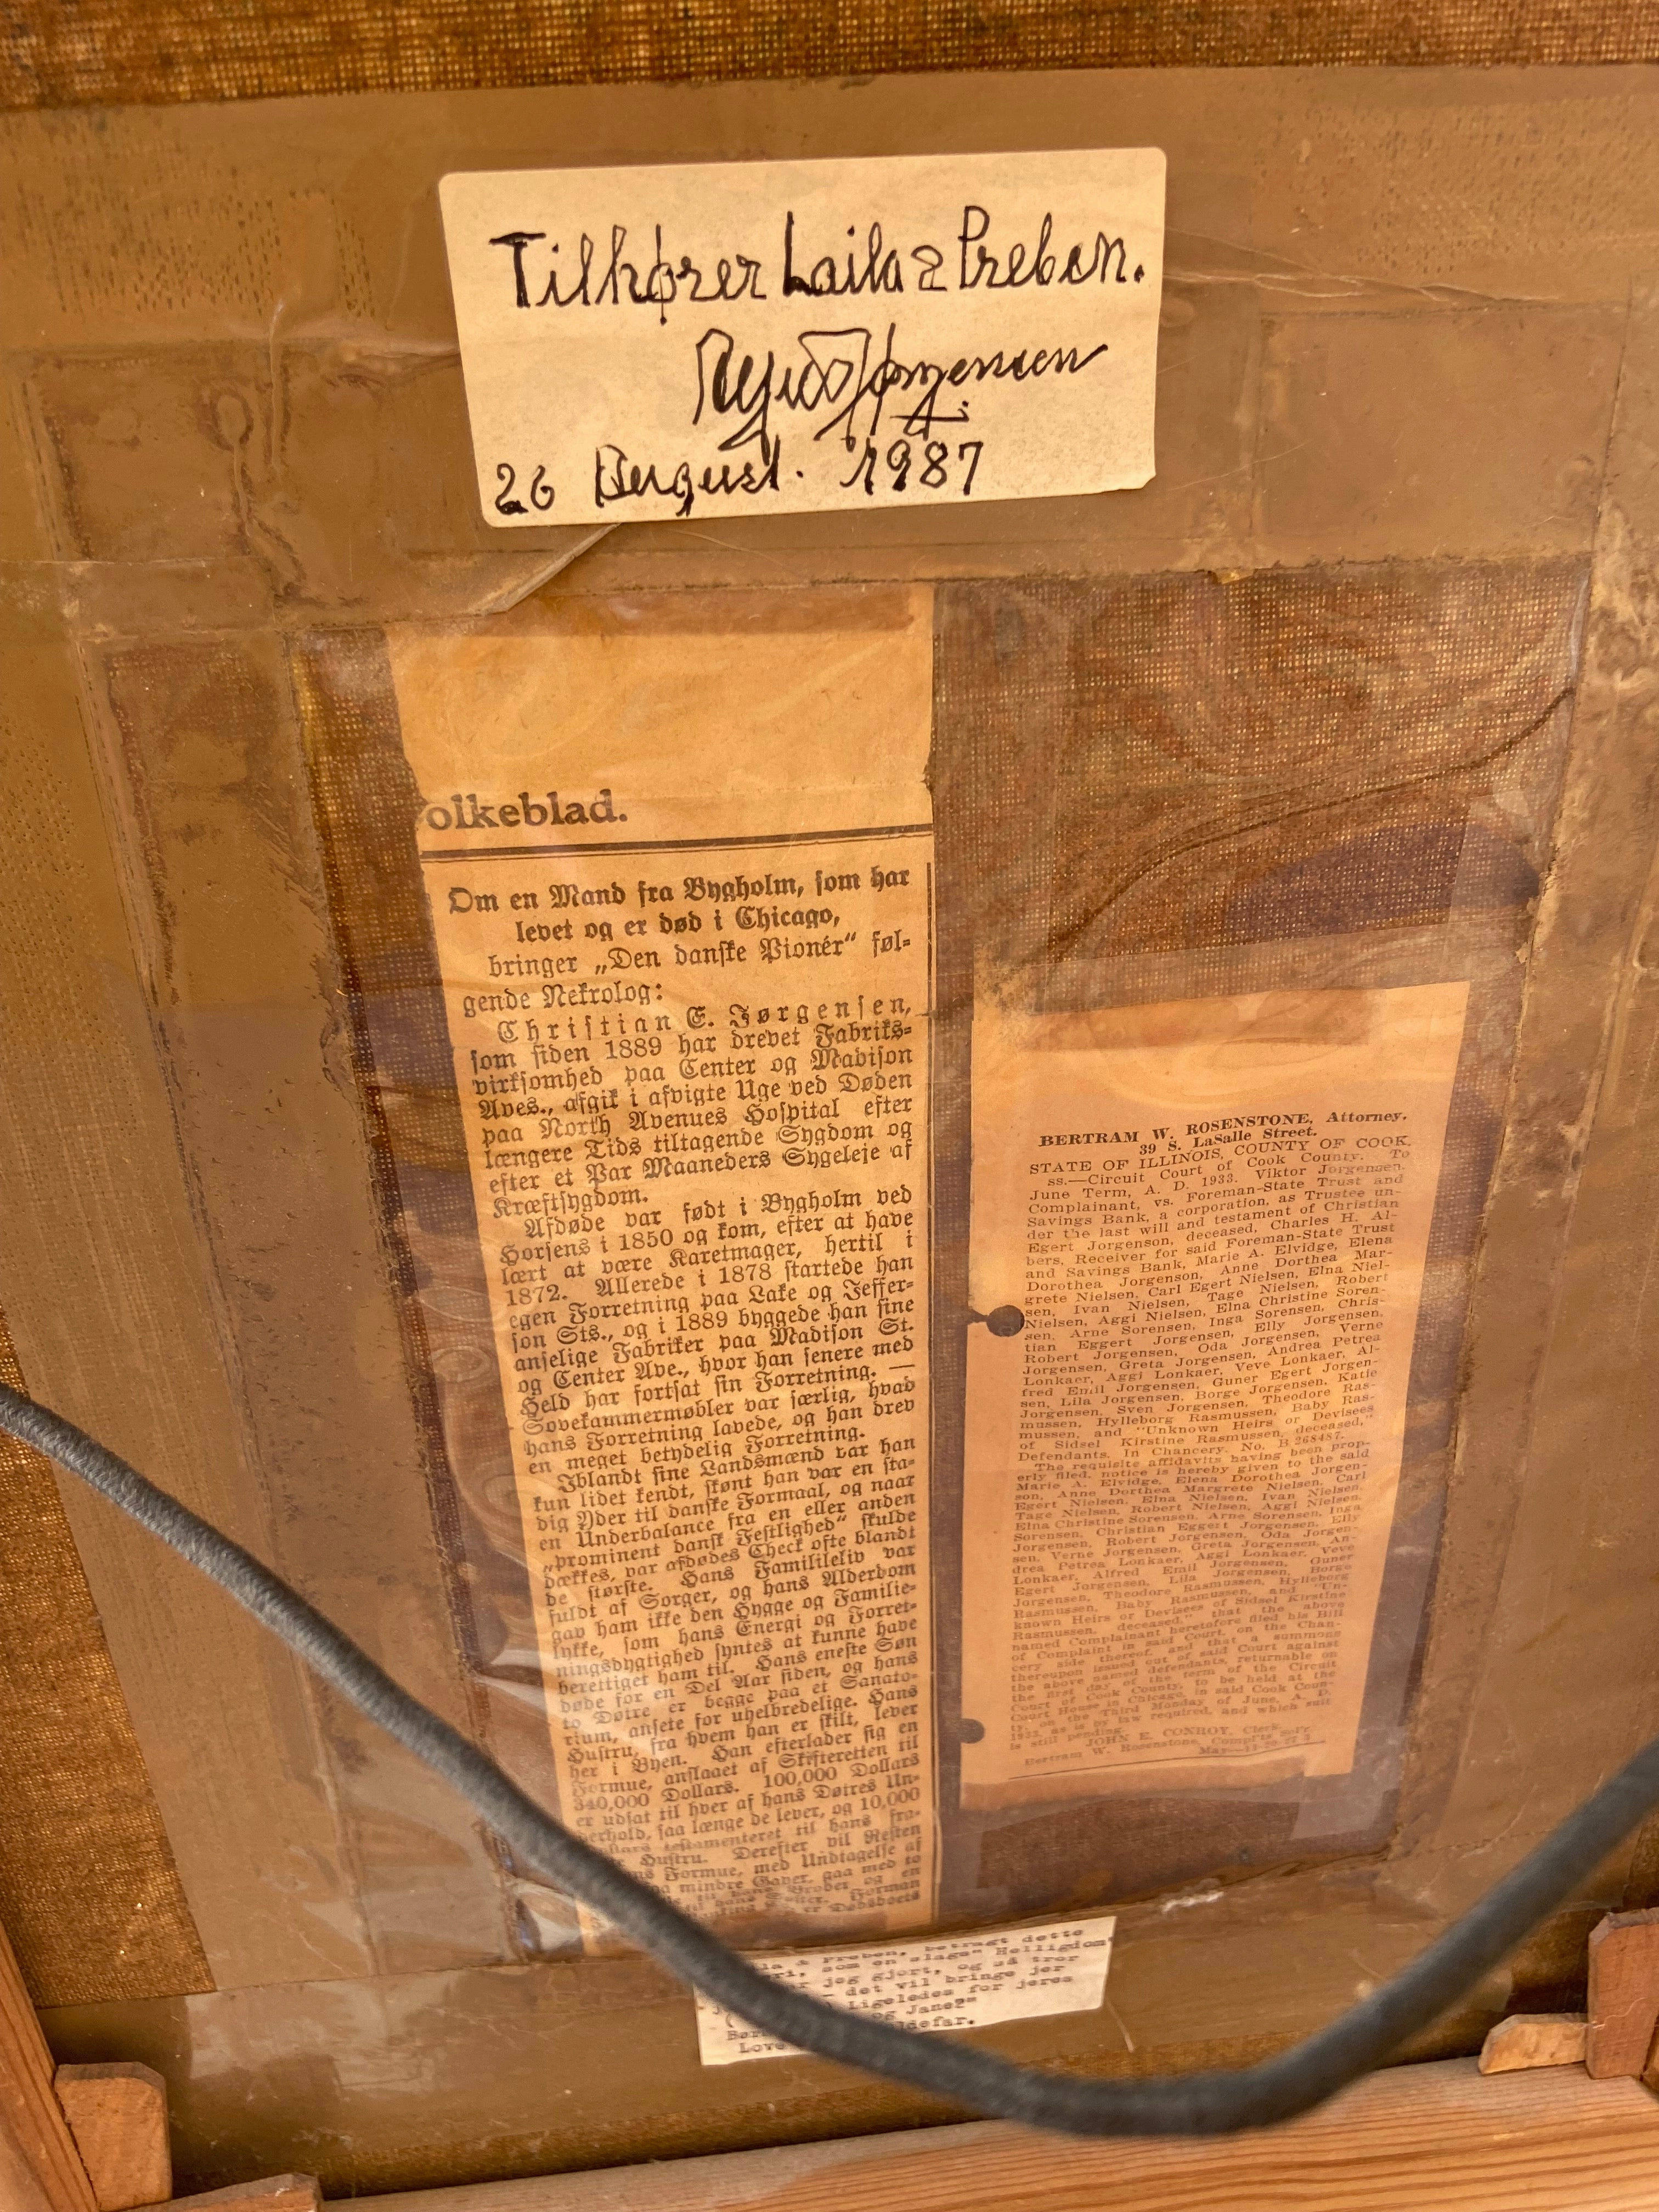 Tilhører Laila & Preben.
Jørgensen
26 August. 1987
olkeblad.
Om en Mand fra Bygholm, som har
levet og er død i Chicago,
bringer „Den danske Pionér“ føl-
gende Nekrolog:
Christian E. Jørgensen,
som siden 1889 har drevet Fabriks-
virksomhed paa Center og Madison
Aves., afgik i afvigte Uge ved Døden
paa North Avenues Hospital efter
længere Tids tiltagende Sygdom og
efter et Par Maaneders Sygeleje af
Kræftsygdom.
Afdøde var født i Bygholm ved
Horsens i 1850 og kom, efter at have
lært at være Karetmager, hertil i
1872. Allerede i 1878 startede han
egen Forretning paa Lake og Jeffer-
son Sts., og i 1889 byggede han sine
anselige Fabriker paa Madison St.
og Center Ave., hvor han senere med
Held har fortsat sin Forretning. —
Sovekammermøbler var særlig, hvad
hans Forretning lavede, og han drev
en meget betydelig Forretning.
Iblandt sine Landsmænd var han
kun lidet kendt, skønt han var en sta-
dig Yder til danske Formaal, og naar
en Underbalance fra en eller anden
„prominent dansk Festlighed“ skulde
dækkes, var afdødes Check ofte blandt
de største. Hans Familieliv var
fuldt af Sorger, og hans Alderdom
gav ham ikke den Hygge og Familie-
lykke, som hans Energi og Forret-
ningsdygtighed syntes at kunne have
berettiget ham til. Hans eneste Søn
døde for en Del Aar siden, og hans
to Døtre er begge paa et Sanato-
rium, ansete for uhelbredelige. Hans
Hustru, fra hvem han er skilt, lever
her i Byen. Han efterlader sig en
Formue, anslaaet af Skifteretten til
340,000 Dollars. 100,000 Dollars
er udsat til hver af hans Døtres Un-
derhold, saa længe de lever, og 10,000
testamenteret til hans fra-
Hustru. Derefter vil Resten
Formue, med Undtagelse af
mindre Gaver, gaa med to
til hans Broder og en
Forman
er Dødsboets
BERTRAM W. ROSENSTONE, Attorney,
39 S. LaSalle Street.
STATE OF ILLINOIS, COUNTY OF COOK,
ss.—Circuit Court of Cook County. To
June Term, A. D. 1933. Viktor Jorgensen,
Complainant, vs. Foreman-State Trust and
Savings Bank, a corporation, as Trustee un-
der the last will and testament of Christian
Egert Jorgenson, deceased, Charles H. Al-
bers, Receiver for said Foreman-State Trust
and Savings Bank, Marie A. Elvidge, Elena
Dorothea Jorgenson, Anne Dorthea Mar-
grete Nielsen, Carl Egert Nielsen, Elna Niel-
sen, Ivan Nielsen, Tage Nielsen, Robert
Nielsen, Aggi Nielsen, Elna Christine Soren-
sen, Arne Sorensen, Inga Sorensen, Chris-
tian Eggert Jorgensen, Elly Jorgensen,
Robert Jorgensen, Oda Jorgensen, Verne
Jorgensen, Greta Jorgensen, Andrea Petrea
Lonkaer, Aggi Lonkaer, Veve Lonkaer, Al-
fred Emil Jorgensen, Guner Egert Jorgen-
sen, Lila Jorgensen, Borge Jorgensen, Katie
Jorgensen, Sven Jorgensen, Theodore Ras-
mussen, Hylleborg Rasmussen, Baby Ras-
mussen, and "Unknown Heirs or Devisees
of Sidsel Kirstine Rasmussen, deceased,"
Defendants. In Chancery. No. B 268487.
The requisite affidavits having been prop-
erly filed, notice is hereby given to the said
Marie A. Elvidge, Elena Dorothea Jorgen-
son, Anne Dorthea Margrete Nielsen, Carl
Egert Nielsen, Elna Nielsen, Ivan Nielsen,
Tage Nielsen, Robert Nielsen, Aggi Nielsen,
Elna Christine Sorensen, Arne Sorensen, Inga
Sorensen, Christian Eggert Jorgensen, Elly
Jorgensen, Robert Jorgensen, Oda Jorgen-
sen, Verne Jorgensen, Greta Jorgensen, An-
drea Petrea Lonkaer, Aggi Lonkaer, Veve
Lonkaer, Alfred Emil Jorgensen, Guner
Egert Jorgensen, Lila Jorgensen, Borge
Jorgensen, Theodore Rasmussen, Hylleborg
Rasmussen, Baby Rasmussen, and "Un-
known Heirs or Devisees of Sidsel Kirstine
Rasmussen, deceased," that the above
named Complainant heretofore filed his Bill
of Complaint in said Court, on the Chan-
cery side thereof, and that a summons
thereupon issued out of said Court against
the above named defendants, returnable on
the first day of the term of the Circuit
Court of Cook County, to be held at the
Court House in Chicago, in said Cook Coun-
ty, on the Third Monday of June, A. D.
1933, as is by law required, and which suit
is still pending.
JOHN E. CONROY, Clerk.
Bertram W. Rosenstone, Compl'ts Sol'r.
May
& Preben, betragt dette
som en slags" Helligdom"
jeg gjort, og så tror
det vil bringe jer
Ligeledes for jeres
og Jane?"
Love